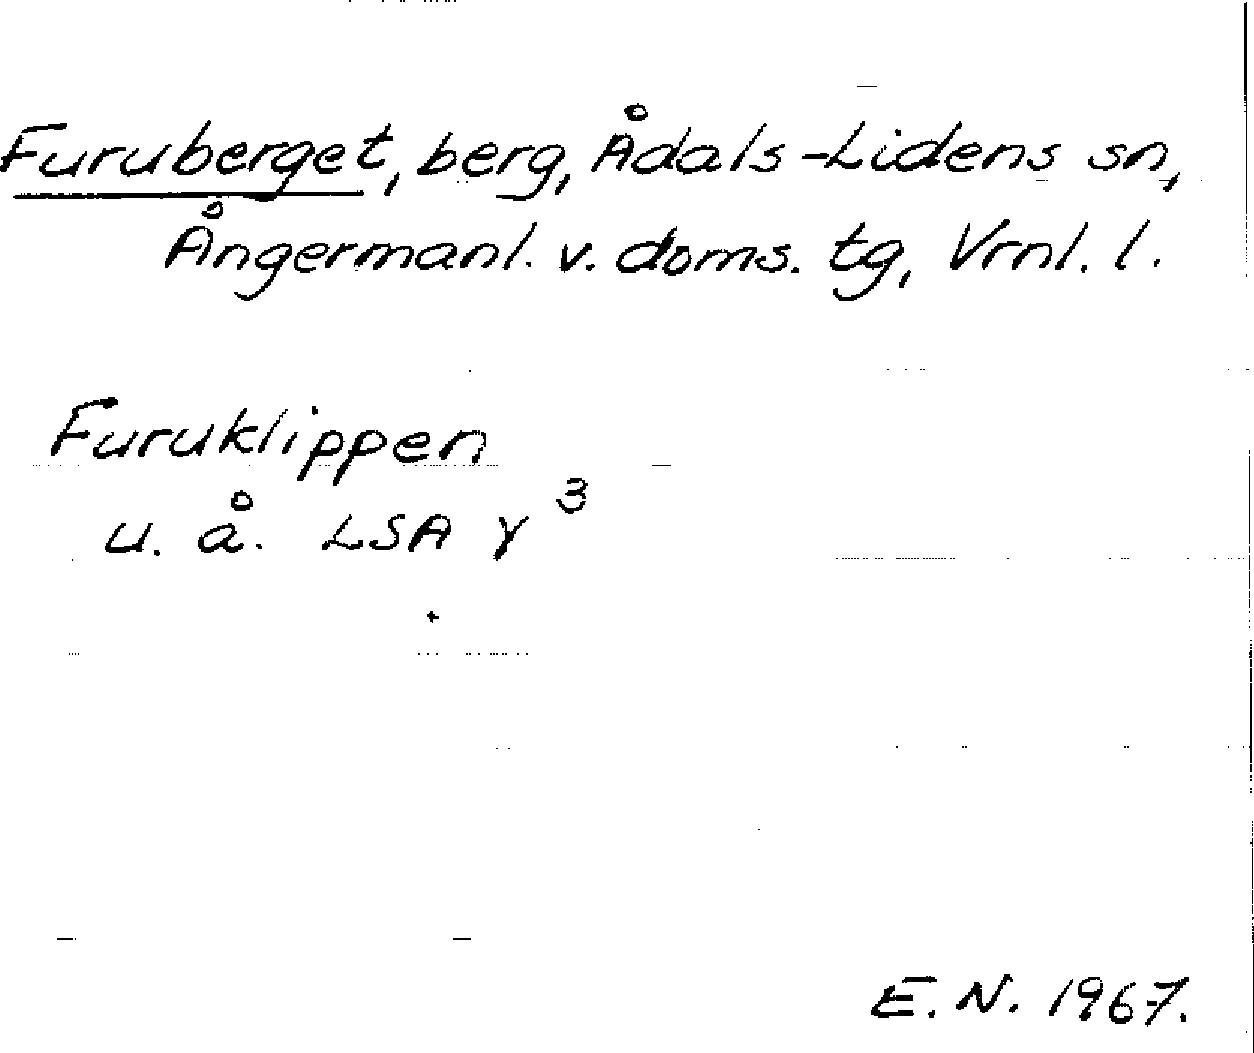 Furuberget, berg, Ådals-Lidens sn,
Ångermanl. v. doms. tg, Vrnl. l.
Furuklippen
u. å. LSA γ 3
E. N. 1967.